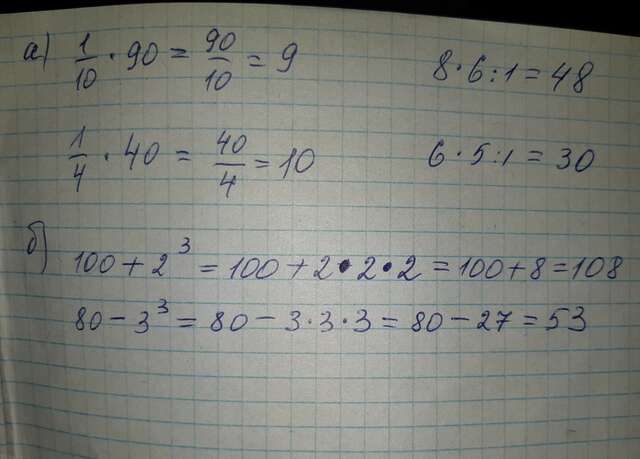 а) 1/10 · 90 = 90/10 = 9 8 · 6 : 1 = 48
1/4 · 40 = 40/4 = 10 6 · 5 : 1 = 30
б) 100 + 2³ = 100 + 2 · 2 · 2 = 100 + 8 = 108
80 − 3³ = 80 − 3 · 3 · 3 = 80 − 27 = 53